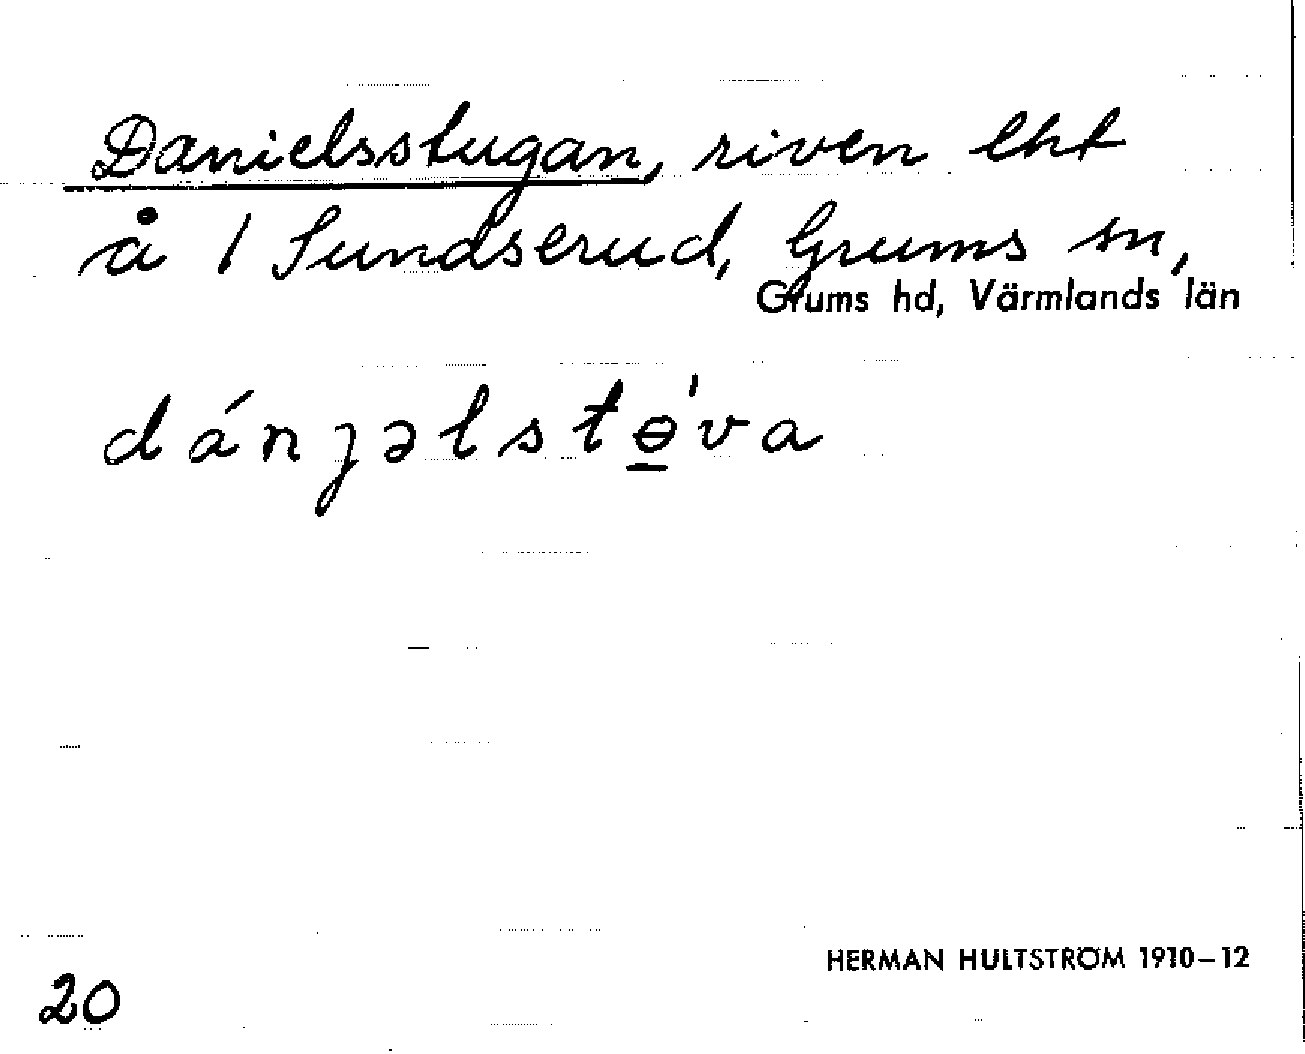 Danielsstugan, riven lht
å 1 Sundserud, Grums sn,
Grums hd, Värmlands län
dánȷəlstɵ̲'va
HERMAN HULTSTRÖM 1910–12
20